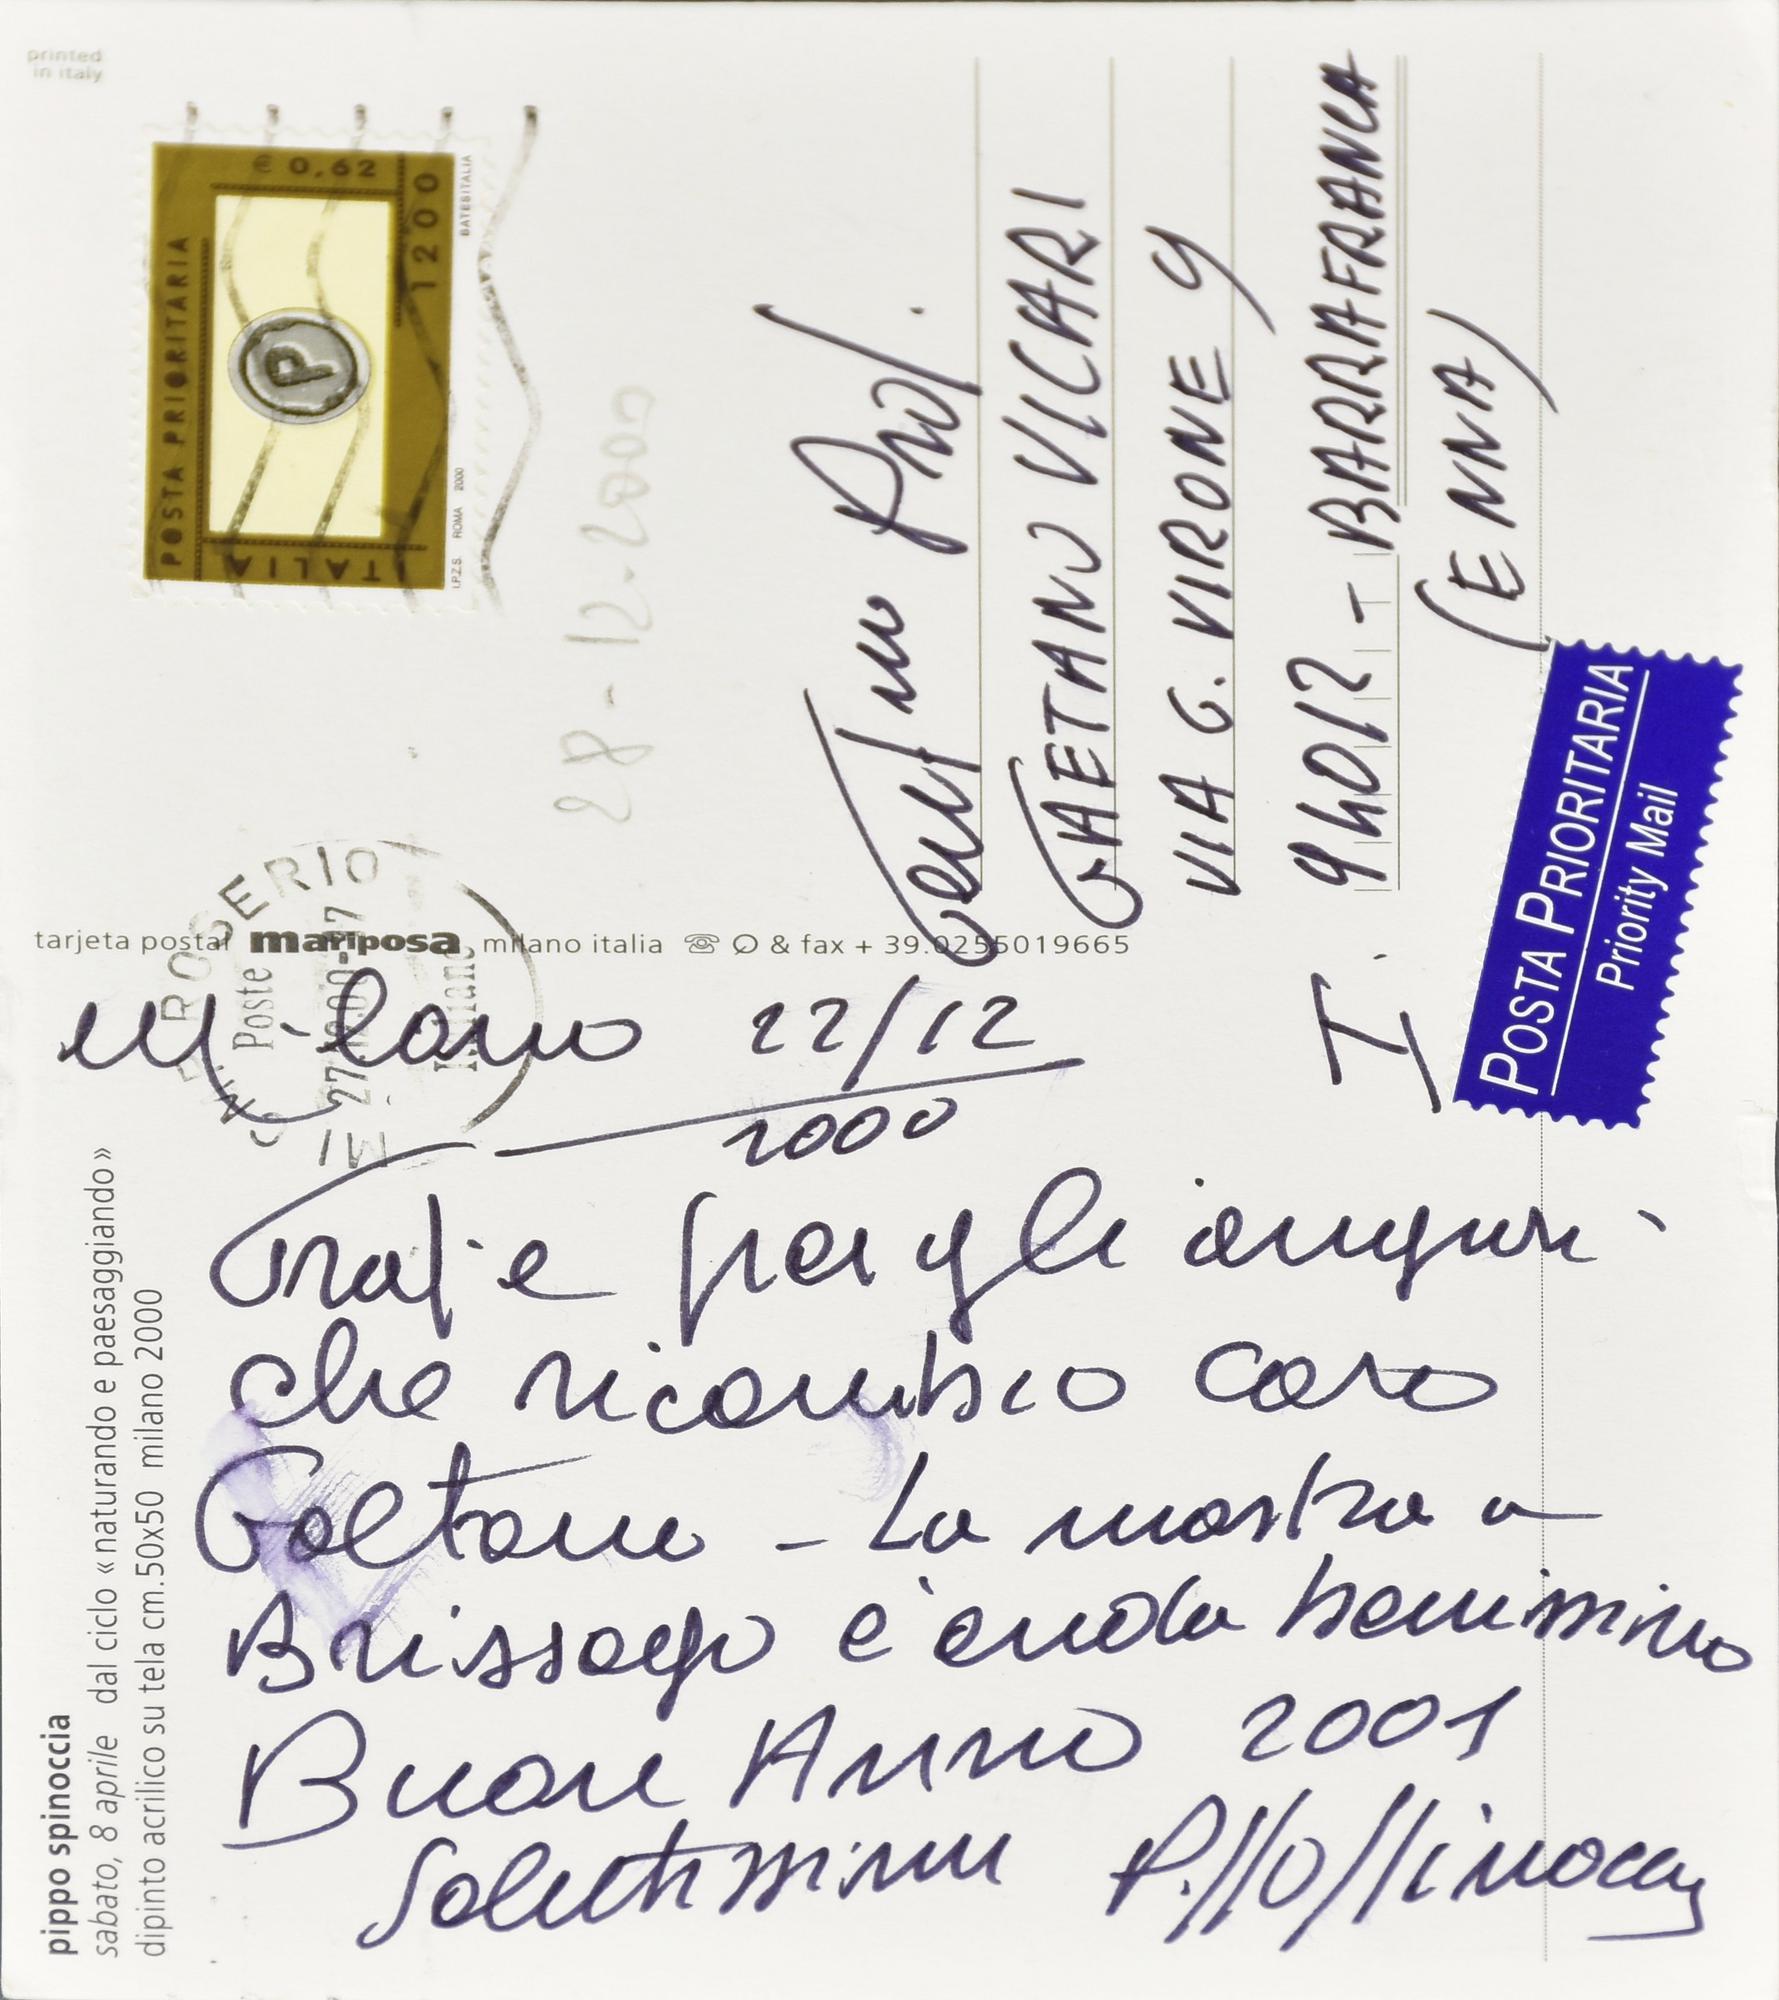 printed
in italy
€ 0,62
1200
POSTA PRIORITARIA
ITALIA
P
BATESITALIA
I.P.Z.S. ROMA 2000
28-12-2000
Gent/mo Prof.
GAETANO VICARI
VIA G. VIRONE 9
94012 - BARRAFRANCA
(ENNA)
I.
POSTA PRIORITARIA
Priority Mail
ROSERIO
Poste
Italiane
MI
tarjeta postal mariposa milano italia & fax + 39.0255019665
Milano 22/12
2000
Grazie per gli auguri
che ricambio caro
Gaetano - La mostra a
Brissago è andata benissimo
Buon Anno 2001
Salutissimi Pippo Spinoccia
pippo spinoccia
sabato, 8 aprile dal ciclo «naturando e paesaggiando»
dipinto acrilico su tela cm.50x50 milano 2000